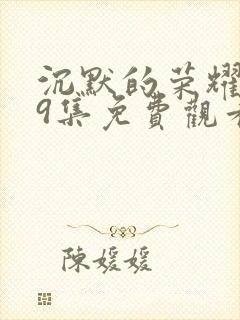 沉默的荣耀
9集免費觀看
陳媛媛